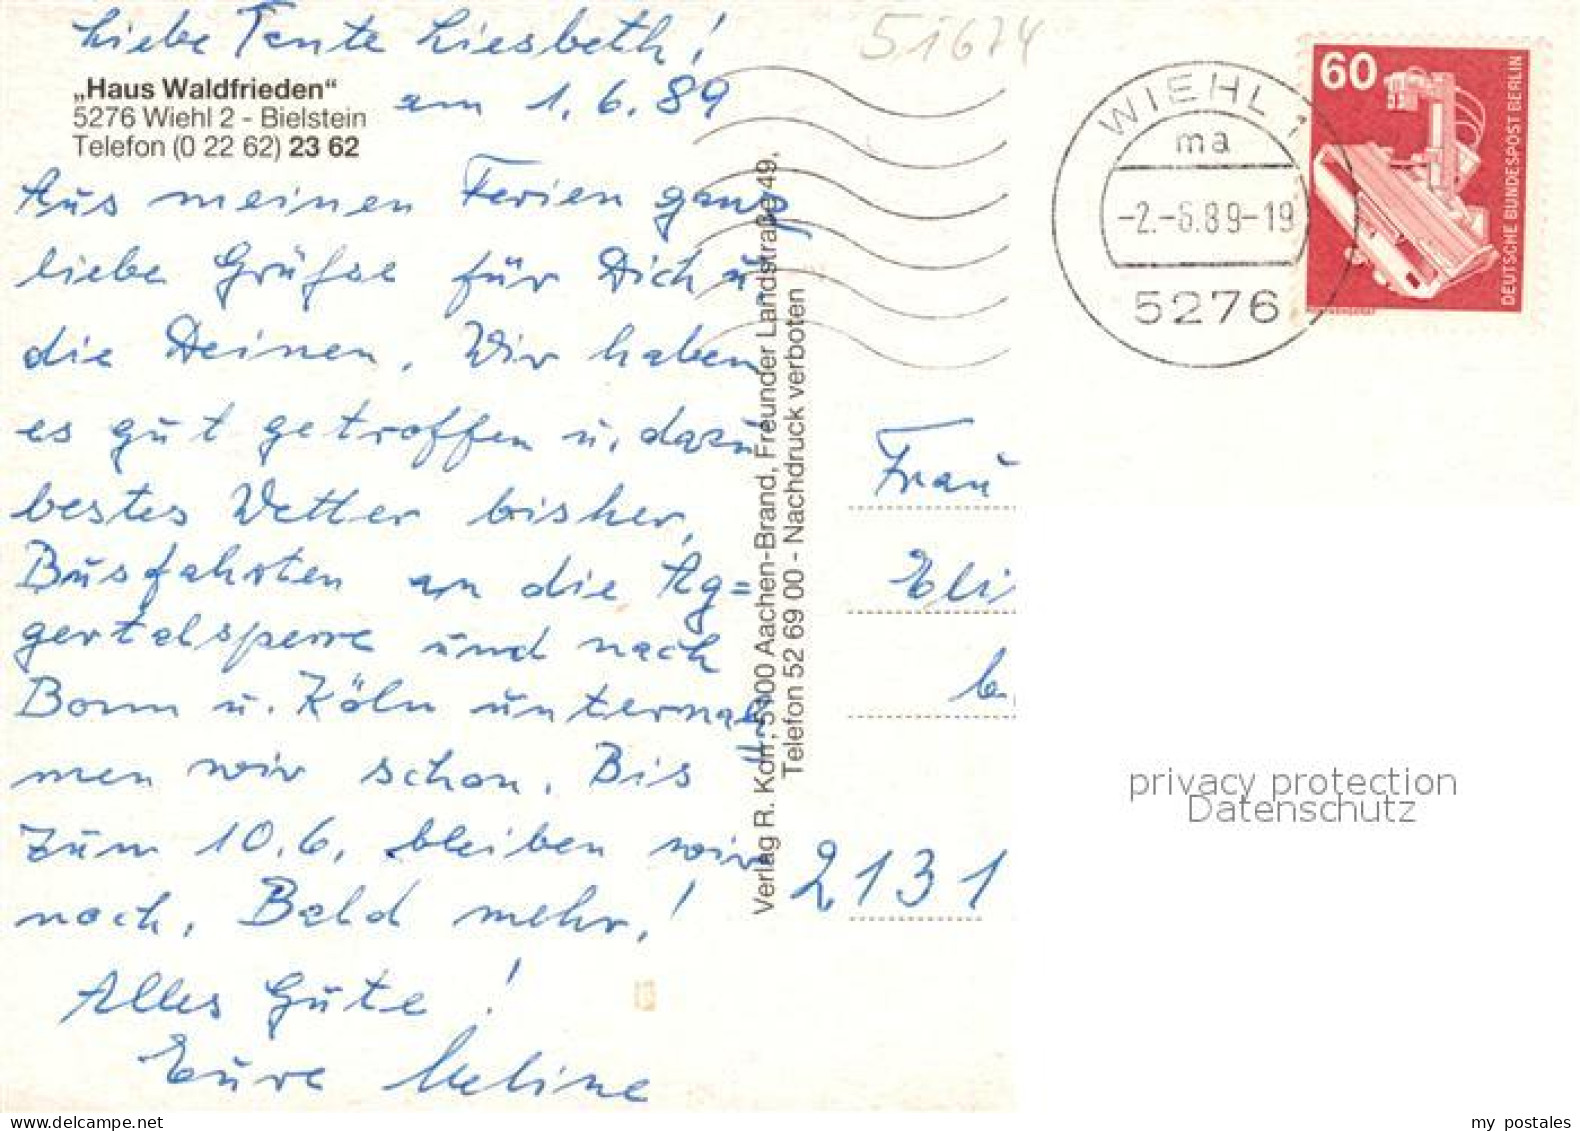 Liebe Tante Liesbeth!
51674
„Haus Waldfrieden“
5276 Wiehl 2 - Bielstein
Telefon (0 22 62) 23 62
am 1.6.89
Aus meinen Ferien ganz
liebe Grüße für Dich u.
die Deinen. Wir haben
es gut getroffen u. dazu
bestes Wetter bisher,
Busfahrten an die Ag=
gertalsperre und nach
Bonn u. Köln unternah=
men wir schon. Bis
zum 10.6. bleiben wir
noch. Bald mehr!
Alles Gute!
Eure
Verlag R. Korr, 5100 Aachen-Brand, Freunder Landstraße 49,
Telefon 52 69 00 - Nachdruck verboten
WIEHL 1
ma
-2.-6.89-19
5276
60
DEUTSCHE BUNDESPOST BERLIN
Frau
Eli
b.
2131
privacy protection
Datenschutz
my postales